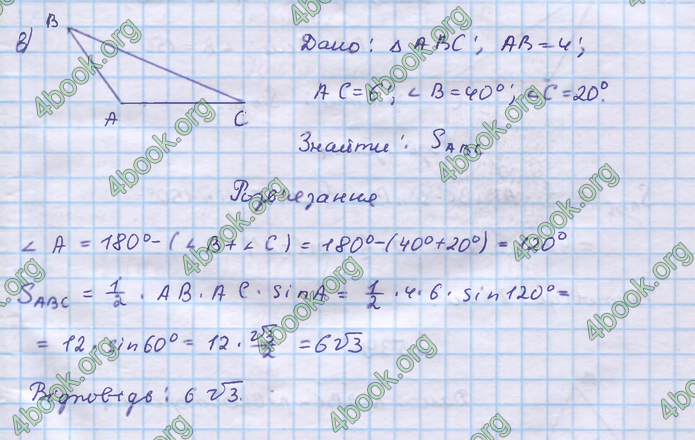 в)
B
A
C
Дано: △ABC; AB = 4;
AC = 6; ∠B = 40°; ∠C = 20°.
Знайти: S_ABC
Розв'язання
∠A = 180° - (∠B + ∠C) = 180° - (40° + 20°) = 120°
S_ABC = 1/2 · AB · AC · sin A = 1/2 · 4 · 6 · sin 120° =
= 12 · sin 60° = 12 · √3/2 = 6√3
Відповідь: 6√3.
4book.org
4book.org
4book.org
4book.org
4book.org
4book.org
4book.org
4book.org
4book.org
4book.org
4book.org
4book.org